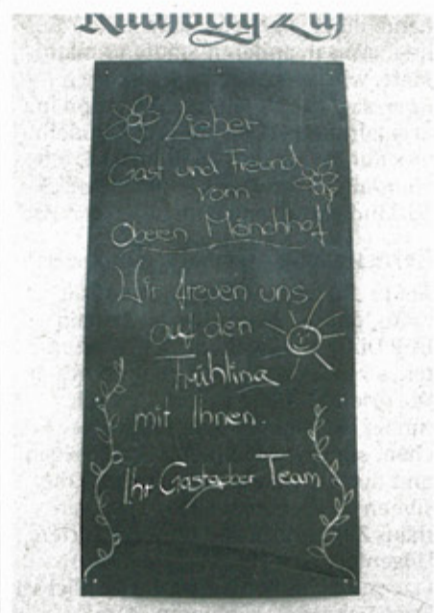 Lieber
Gast und Freund
vom
Oberen Mönchhof
Wir freuen uns
auf den
Frühling
mit Ihnen.
Ihr Gastgeber Team